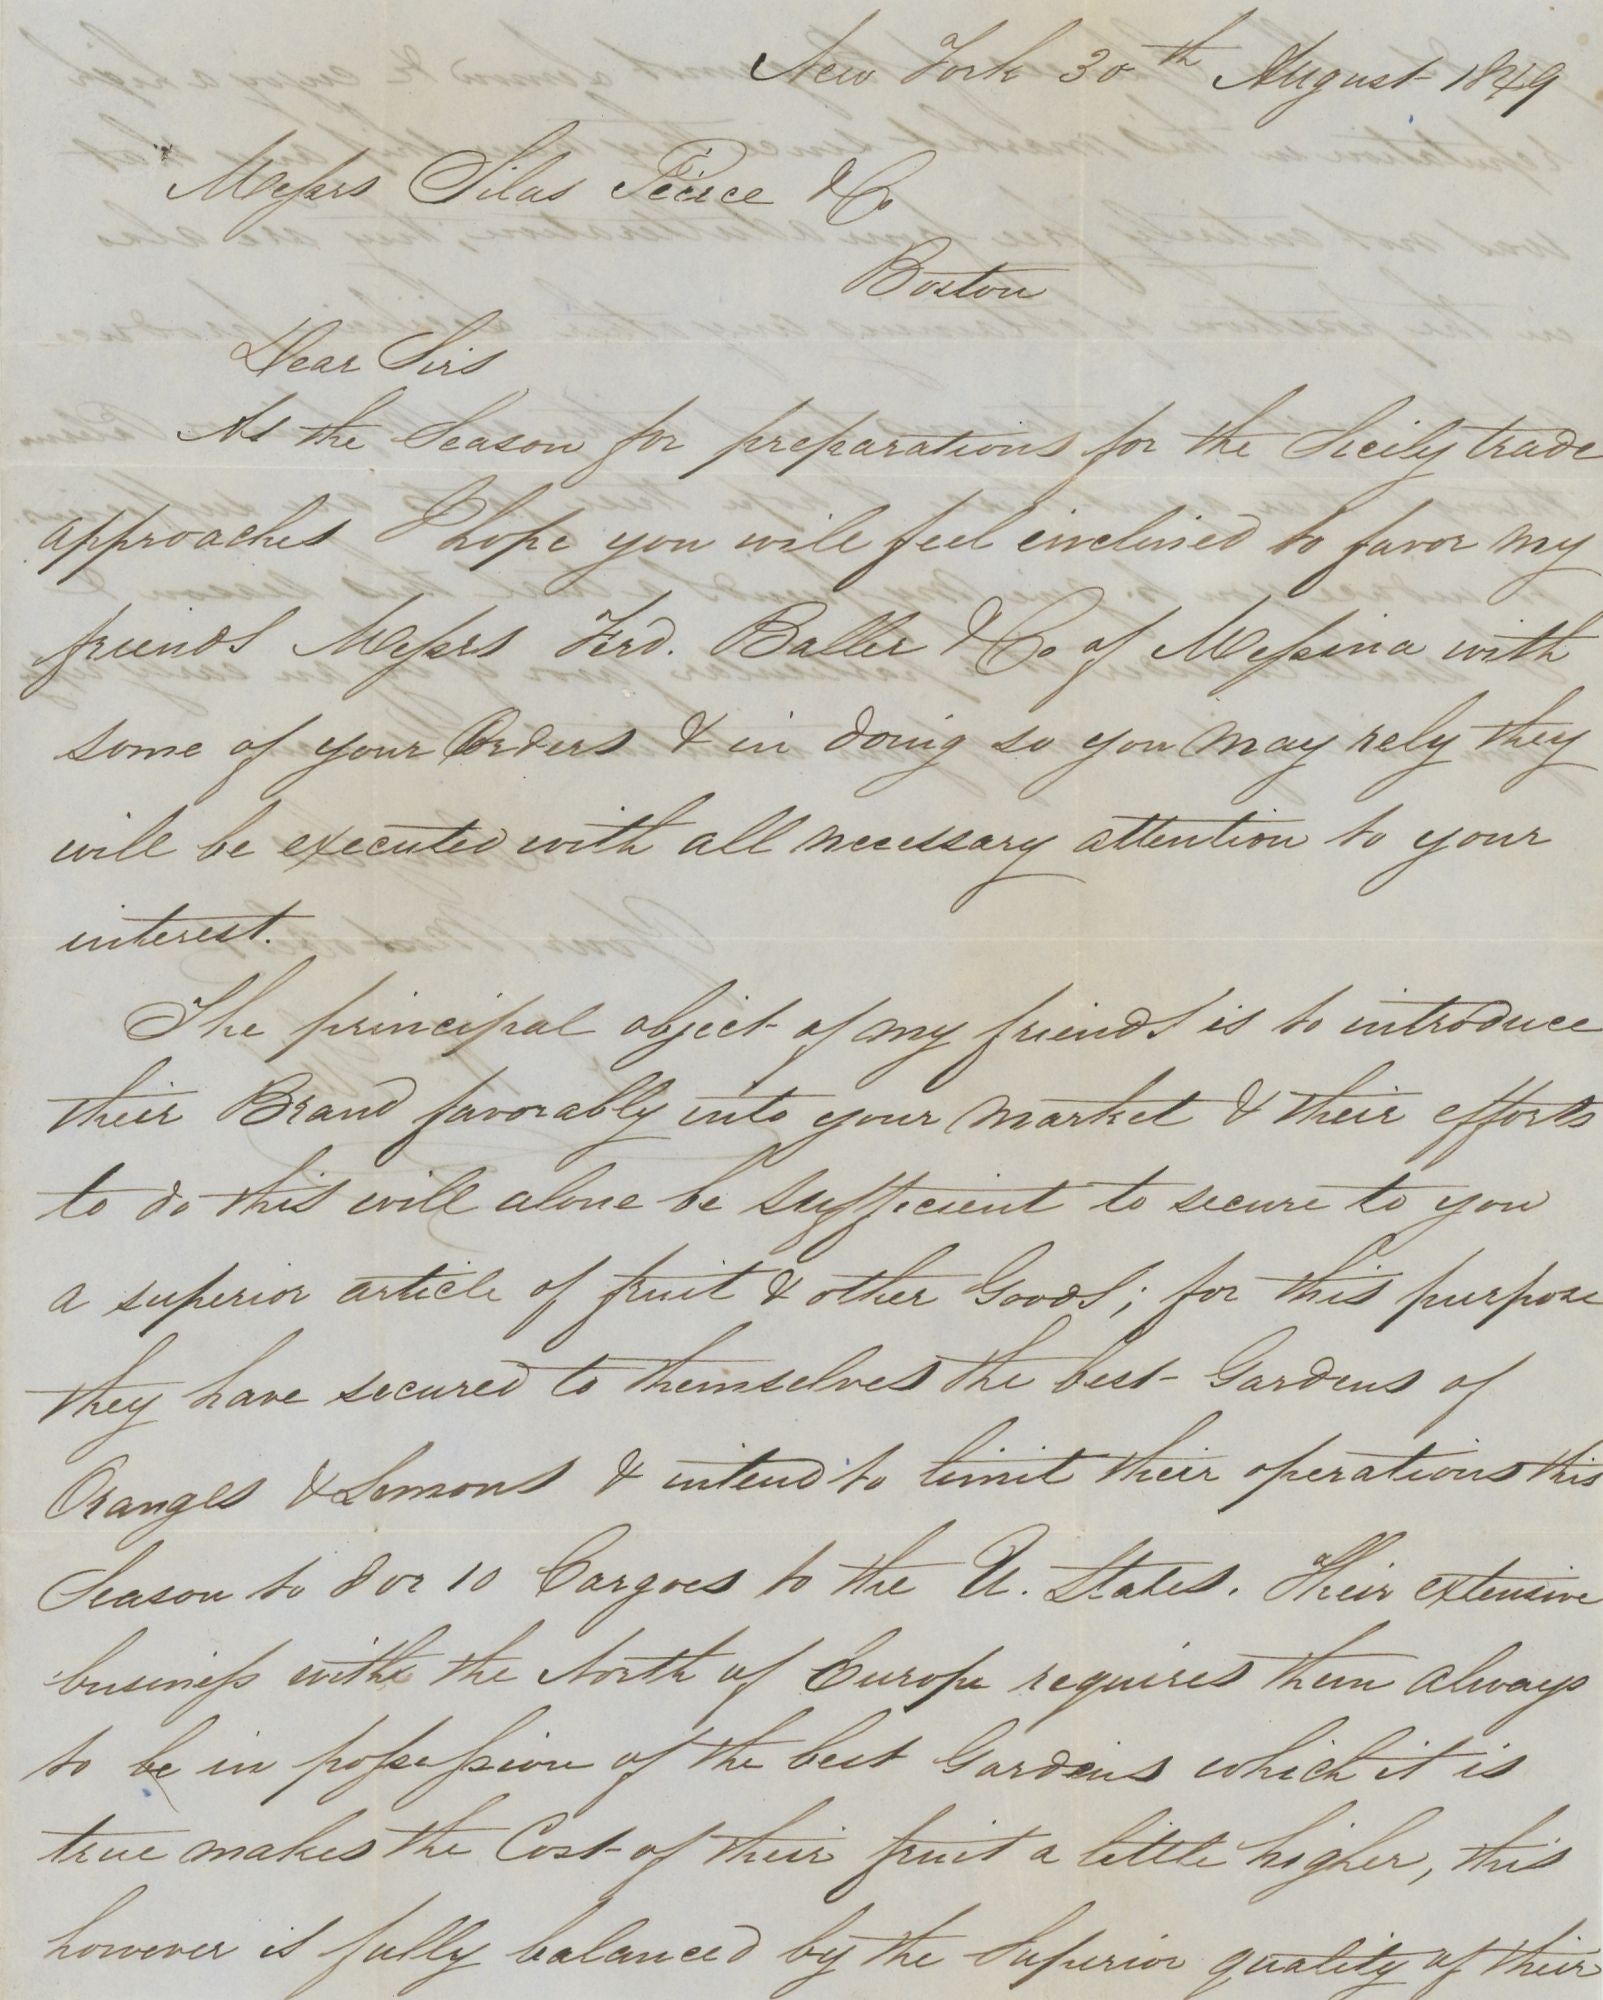 New York 30th August 1849
Messrs Silas Peirce & Co
Boston
Dear Sirs
As the Season for preparations for the Sicily trade
approaches I hope you will feel inclined to favor my
friends Messrs Ferd. Baller & Co of Messina with
some of your Orders & in doing so you may rely they
will be executed with all necessary attention to your
interest.
The principal object of my friends is to introduce
their Brand favorably into your market & their efforts
to do this will alone be sufficient to secure to you
a superior article of fruit & other Goods; for this purpose
they have secured to themselves the best Gardens of
Oranges & Lemons & intend to limit their operations this
Season to 8 or 10 Cargoes to the U. States. Their extensive
business with the North of Europe requires them always
to be in possession of the best Gardens which it is
true makes the Cost of their fruit a little higher, this
however is fully balanced by the Superior quality of their